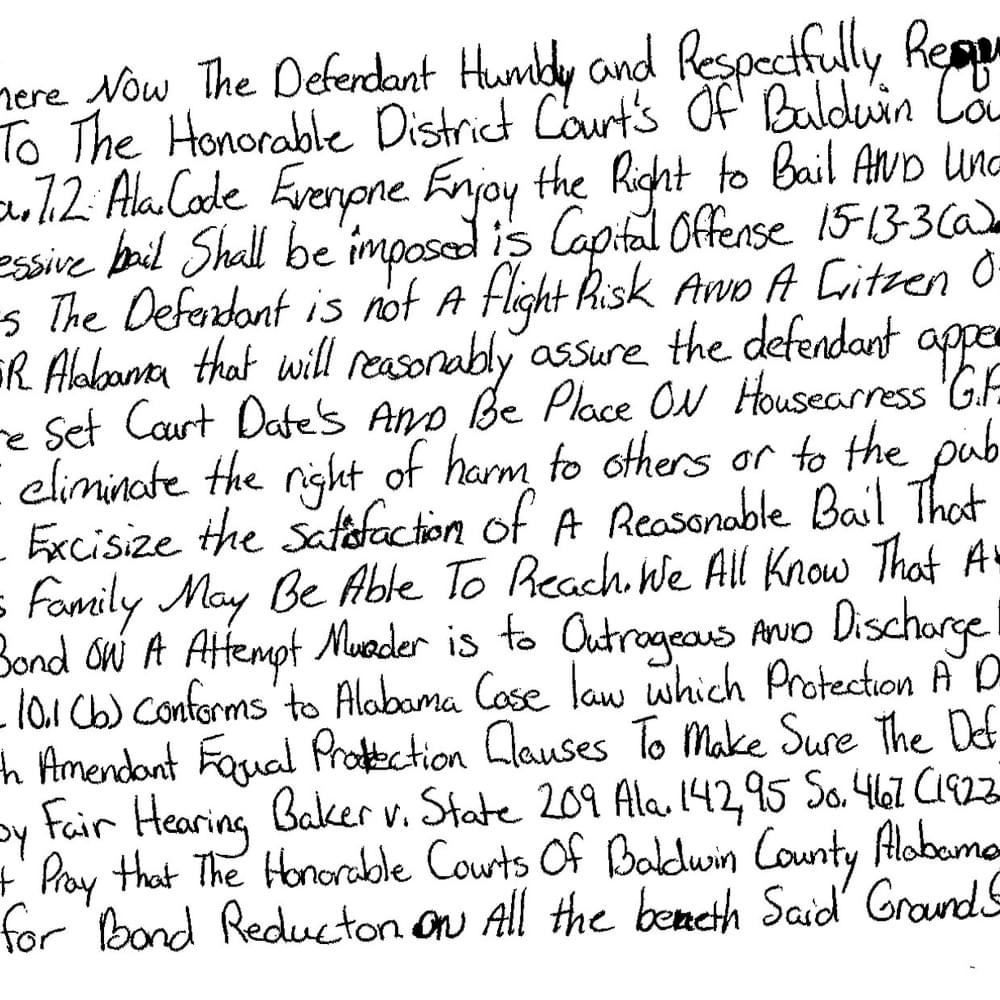 here Now The Defendant Humbly and Respectfully Requ
To The Honorable District Court's Of Baldwin Cou
a. 7.2. Ala. Code Everyone Enjoy the Right to Bail AND Und
essive bail Shall be imposed is Capital Offense 15-13-3(a)
s The Defendant is not A flight Risk AND A Citzen O
OR Alabama that will reasonably assure the defendant appea
re Set Court Date's AND Be Place ON Housearress G.P.
eliminate the right of harm to others or to the pub
Excisize the satisfaction of A Reasonable Bail That
s Family May Be Able To Reach. We All Know That A
Bond ON A Attempt Murder is to Outrageous AND Discharge
10.1 (b) conforms to Alabama Case law which Protection A D
h Amendant Equal Protection Clauses To Make Sure The Def
oy Fair Hearing Baker v. State 209 Ala. 142, 95 So. 467 (1923
t Pray that The Honorable Courts Of Baldwin County Alabama
for Bond Reducton ON All the beneth Said Grounds